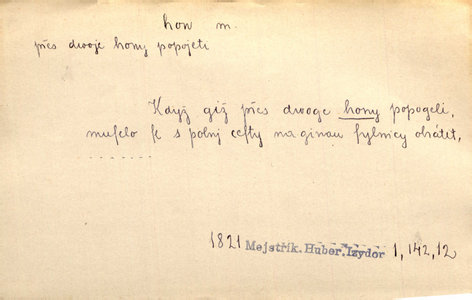 hon m.
přes dvoje hony popojeti
Když giž přes dwoge hony popogeli,
muselo se s polnj cesty na ginau sylnicy obrátit,
. . . . . . .
1821 Mejstřík. Huber. Izydor 1, 142, 12